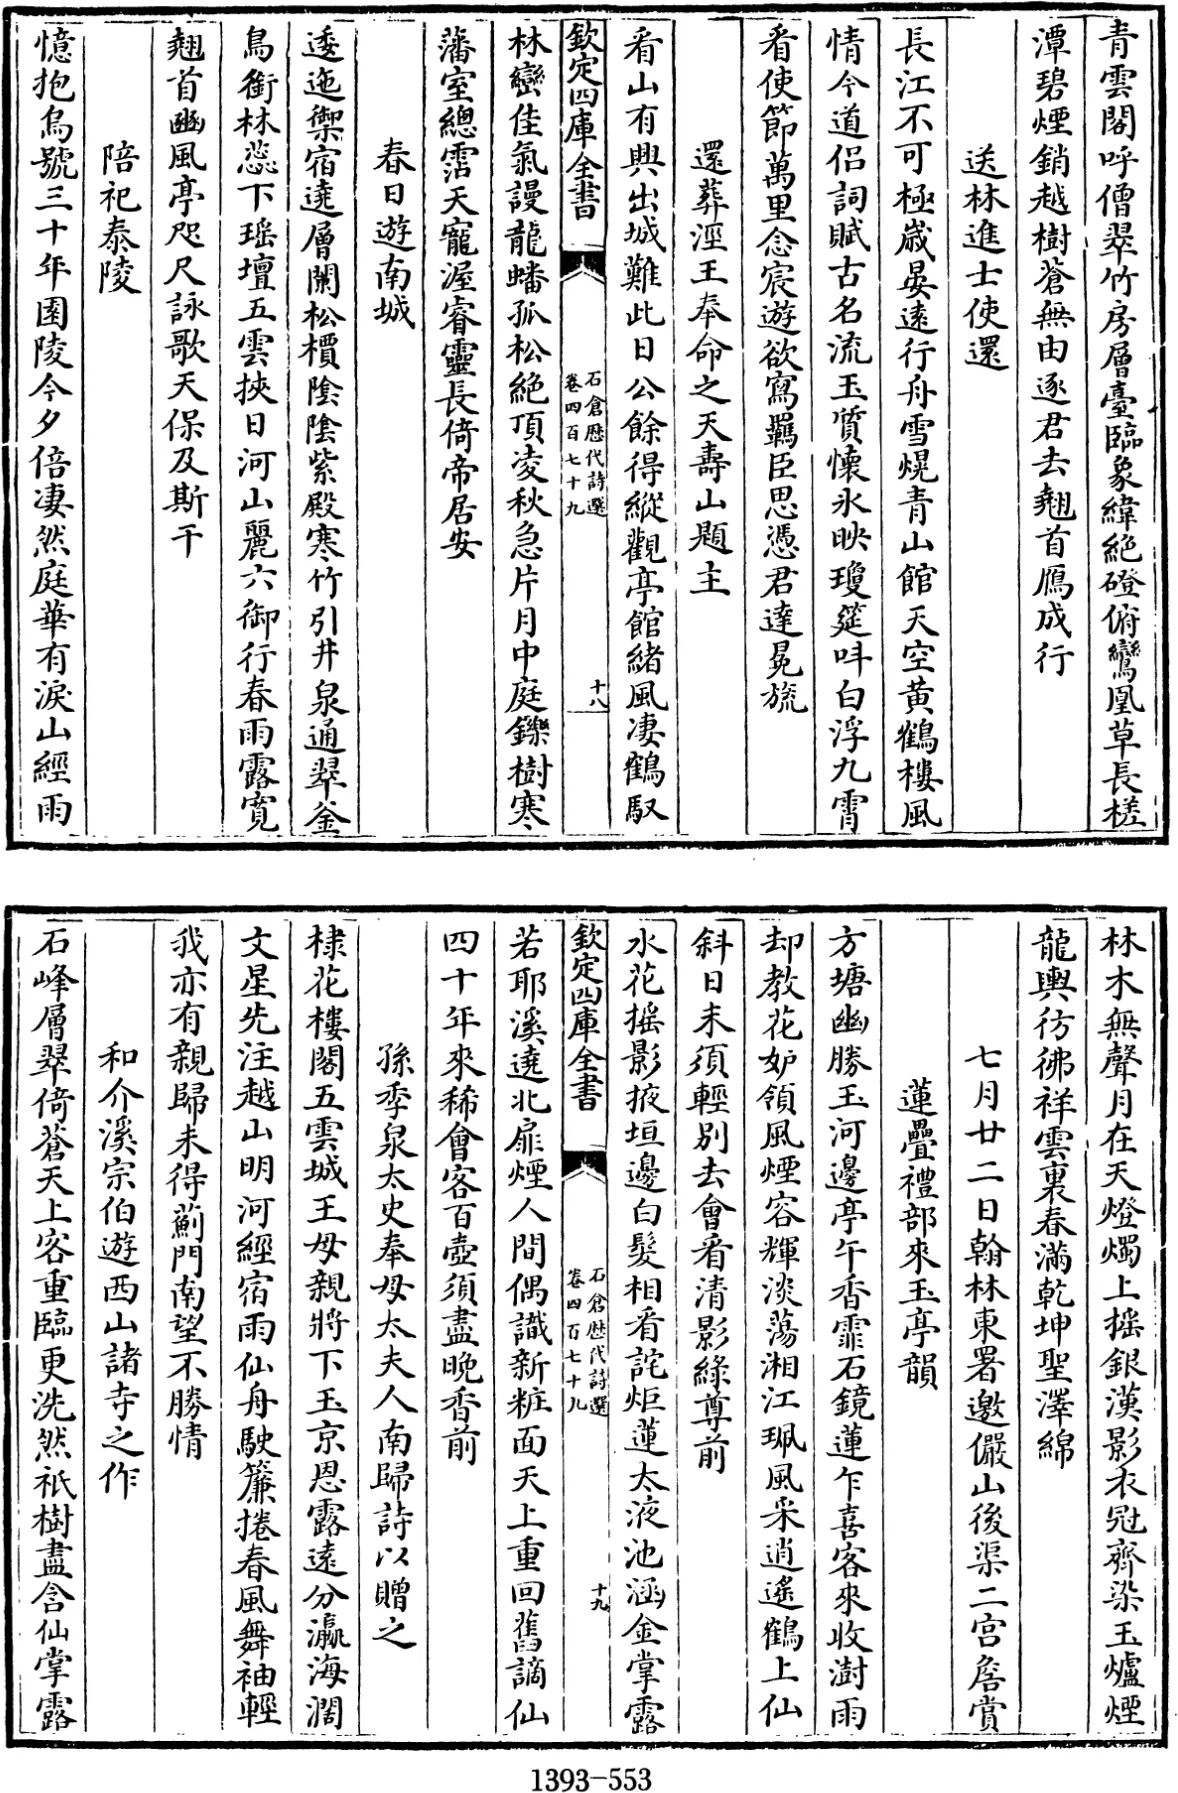 青雲閣呼僧翠竹房層臺臨象緯絶磴俯鸞凰草長槎
潭碧煙銷越樹蒼無由逐君去翹首鴈成行
送林進士使還
長江不可極歳晏逺行舟雪幌青山館天空黄鶴樓風
情今道侣詞賦古名流玉質懐氷映瓊筵呌白浮九霄
看使節萬里念宸遊欲寫羈臣思憑君達冕旒
還葬涇王奉命之天壽山題主
看山有興出城難此日公餘得縱觀亭館緒風凄鶴馭
欽定四庫全書
石倉歴代詩選
卷四百七十九
十八
林巒佳氣謾龍蟠孤松絶頂凌秋急片月中庭鑠樹寒
藩室總霑天寵渥睿靈長倚帝居安
春日遊南城
逶迤禦宿遶層闌松檟陰陰紫殿寒竹引井泉通翠釜
鳥銜林蕊下瑶壇五雲挾日河山麗六御行春雨露寛
翹首豳風亭咫尺詠歌天保及斯干
陪祀泰陵
憶抱烏號三十年園陵今夕倍凄然庭華有淚山經雨
林木無聲月在天燈燭上摇銀漢影衣冠齊染玉爐煙
龍輿彷彿祥雲裏春滿乾坤聖澤綿
七月廿二日翰林東署邀儼山後渠二宫詹賞
蓮疊禮部來玉亭韻
方塘幽勝玉河邊亭午香霏石鏡蓮乍喜客來收澍雨
却教花妒領風煙容輝淡蕩湘江珮風采逍遥鶴上仙
斜日未須輕别去會看清影緑尊前
水花摇影掖垣邊白髮相看詫炬蓮太液池涵金掌露
欽定四庫全書
石倉歴代詩選
卷四百七十九
十九
若耶溪遶北扉煙人間偶識新粧面天上重回舊謫仙
四十年來稀會客百壺須盡晩香前
孫季泉太史奉母太夫人南歸詩以贈之
棣花樓閣五雲城王母親將下玉京恩露逺分瀛海濶
文星先注越山明河經宿雨仙舟駛簾捲春風舞袖輕
我亦有親歸未得薊門南望不勝情
和介溪宗伯遊西山諸寺之作
石峰層翠倚蒼天上客重臨更洗然祇樹盡含仙掌露
1393-553